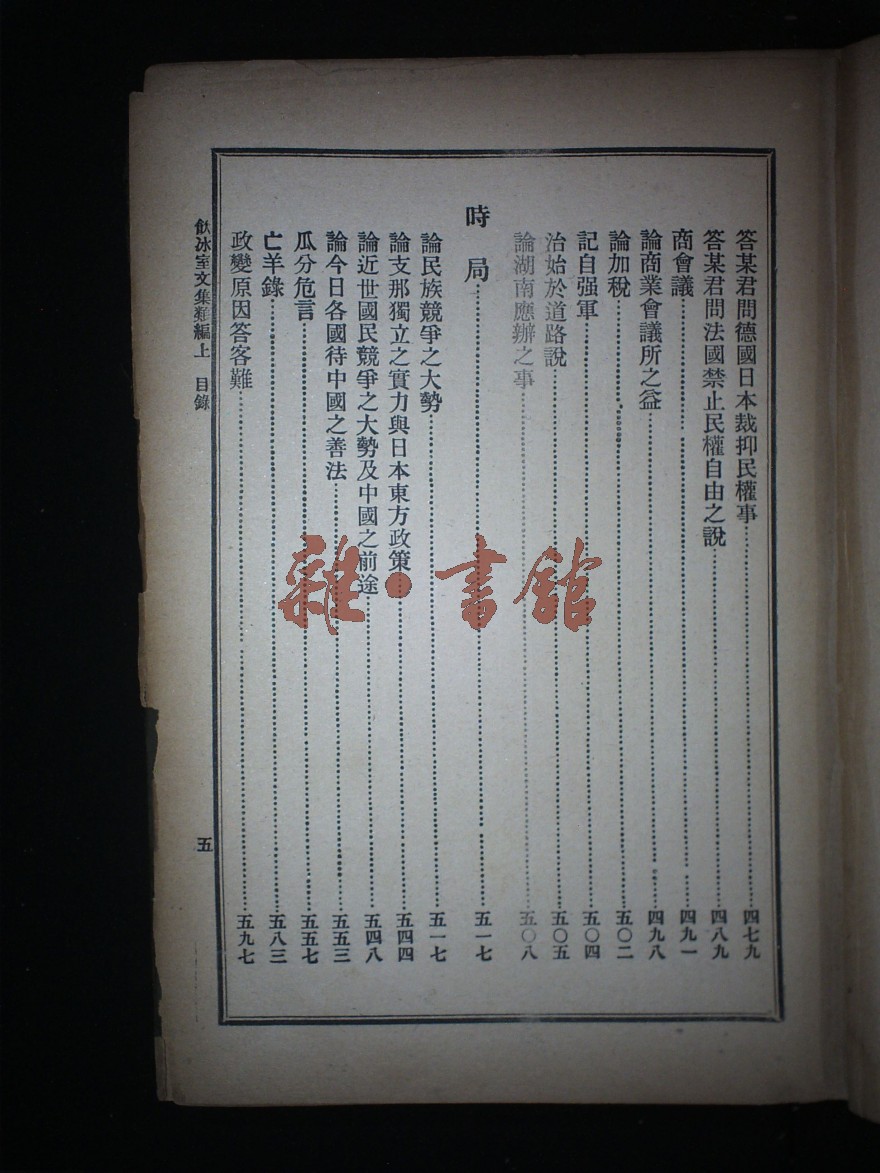 答某君問德國日本裁抑民權事……四七九
答某君問法國禁止民權自由之說……四八九
商會議……四九一
論商業會議所之益……四九八
論加稅……五〇二
記自强軍……五〇四
治始於道路說……五〇五
論湖南應辦之事……五〇八
時局……五一七
論民族競爭之大勢……五一七
論支那獨立之實力與日本東方政策……五四四
論近世國民競爭之大勢及中國之前途……五四八
論今日各國待中國之善法……五五三
瓜分危言……五五七
亡羊錄……五八三
政變原因答客難……五九七
飲冰室文集類編上 目錄 五
雜·書館